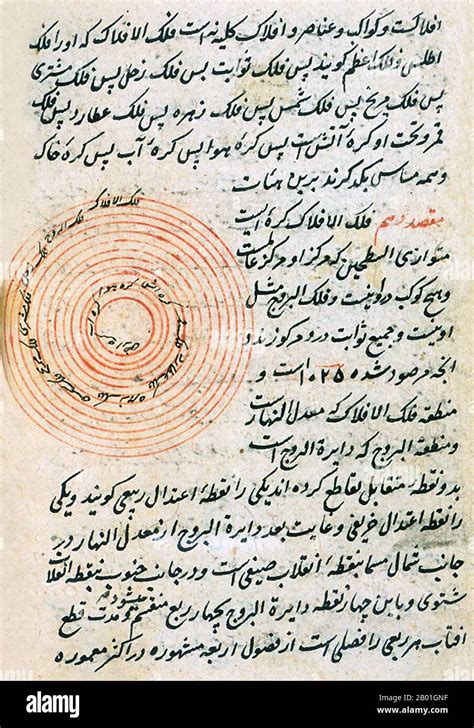 افلاکست و کواکب و عناصر و افلاک کلیه نه است فلک الافلاک که او را فلک
اطلس و فلک اعظم کویند پس فلک ثوابت پس فلک زحل پس فلک مشتری
پس فلک مریخ پس فلک شمس پس فلک زهره پس فلک عطارد پس فلک
قمر و تحت او کرهٔ آتش است پس کرهٔ هوا پس کرهٔ آب پس کرهٔ خاک
و همه مماس یکدیکرند برین هیئات
مقصد دهم فلک الافلاک کرهٔ ایست
متوازی السطحین که مرکز او مرکز عالمست
و هیچ کوکب درو نیست و فلک البروج مثل
اوست و جمیع ثوابت درو مرکوزند و
آنچه مرصود شده ۱۰۲۵ است و
منطقه فلک الافلاک که معدل النهار است
و منطقه البروج که دایرة البروج است
بدو نقطه متقابل تقاطع کرده اند یکی را نقطهٔ اعتدال ربیعی کویند و یکی
را نقطهٔ اعتدال خریفی و غایت بعد دایرة البروج از معدل النهار در
جانب شمال مسما بنقطهٔ انقلاب صیفی است و در جانب جنوب بنقطه انقلاب
شتوی و باین چهار نقطه دایرة البروج بچهار ربع منقسم میشود و مدت قطع
آفتاب هر ربعی را فصلی است از فصول اربعه مشهوره در اکثر معموره
فلک الافلاک
فلک البروج
alamy
Image ID: 2B01GNF
www.alamy.com